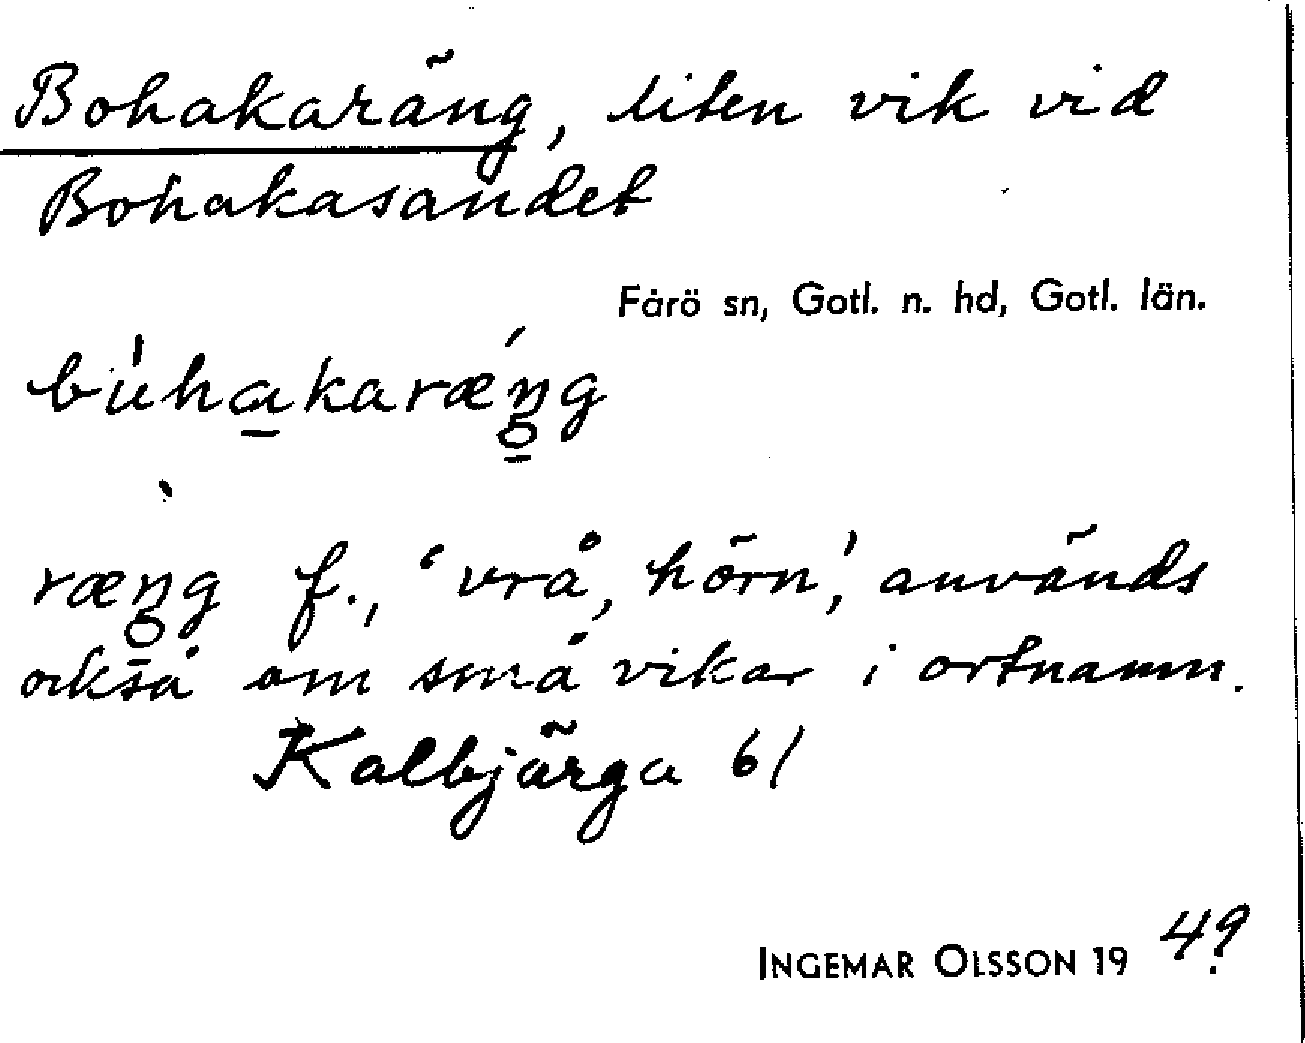 Bohakaräng, liten vik vid
Bohakasandet
Fårö sn, Gotl. n. hd, Gotl. län.
bu̍hakaræ´ŋg
ræŋg f., ‘vrå, hörn’, används
också om små vikar i ortnamn.
Kalbjärga 61
INGEMAR OLSSON 1949.